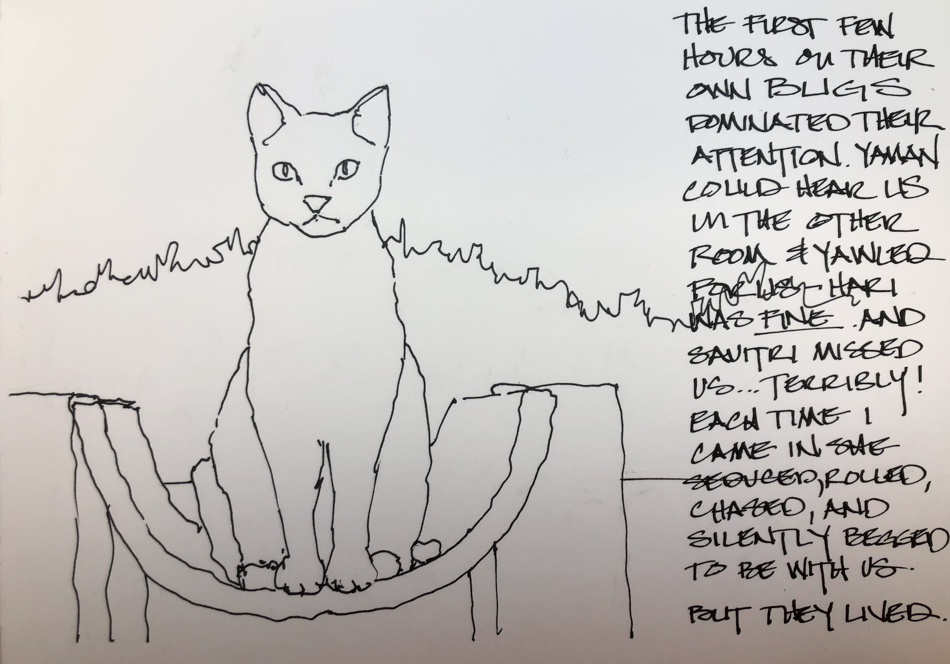 THE FIRST FEW
HOURS ON THEIR
OWN BUGS
DOMINATED THEIR
ATTENTION. YAMAN
COULD HEAR US
IN THE OTHER
ROOM & YAWLED
FOR US. HARI
WAS FINE. AND
SAVITRI MISSED
US... TERRIBLY!
EACH TIME I
CAME IN SHE
SEDUCED, ROLLED,
CHASED, AND
SILENTLY BEGGED
TO BE WITH US.
BUT THEY LIVED.